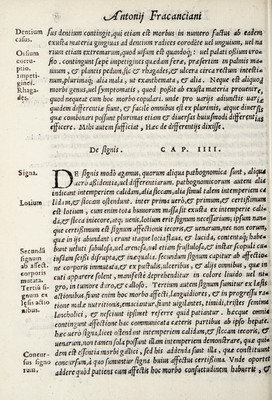 Antonij Fracanciani
Dentium
casus.
Ossium
corru-
ptio.
Impeti-
gines.
Rhaga-
des.
sus dentium contingit, qui etiam est morbus in numero factus ab eadem
exusta materia gingiuas ad dentium radices corrodente
etiam extremarum, quod ossium est
sio. contingunt sæpe impetigines quædam
um, & plantis pedum, siue & rhagades, & ulcera circa rectum intesti-
num, plurimáq; alia mala, ut exanthemata, & alia. Neque est aliquod
morbi genus, uel symptomatis, quod posit ab exusta materia prouenire,
quod nequeat cum hoc morbo copulari. unde pro uarijs adiunctis uariæ
quædam differentiæ fiunt, & facilè omnibus est ex plurimis, atque diuersis
quæ combinari possunt plurimas etiam & diuersas huiusmodi differentias
efficere. Mihi autem sufficiat, Hæc de differentijs dixisse.
De signis. CAP. IIII.
Signa.
Lotium
Secundi
signum
ab affect.
corporis
mutata.
Tertiũ si-
gnum ex
læsis actio
nibus.
Concur-
sus signo
rum.
DE signis modò agemus, quorum aliqua pathognomica sunt, aliqua
uerò asidentia, aliqua differentiarum: pathognomicorum autem alia
indicant intemperiem calidam, alia siccam, alia simul talem intemperiem ca
lidam, & siccam ostendunt. inter prima uerò, & primum, & certißimum
est lotium, cum enim tota bonorum massa sit exusta ex intemperie cali-
da, & sicca iniecore, atq. uenis, lotium erit signum necessarium, ipsum nan-
que certißimum est signum affectionis iecoris, & uenarum, nec non eorum,
quæ in ijs abundant: erunt itaque lotia flaua, & lucida, contentáq; habe-
bunt ueluti sabulosa, uel arenosa, uel etiam frustulosa, & instar scopuli cu-
iusdam scisi disrupta, & inæqualia. secundum signum capitur ab affectio-
ne corporis immutata, & ex pustulis, ulceribus, & alijs omnibus, quæ in
cuti apparere solent, manifestè deprehenditur. in colore liuido uel ni-
gro, in tumore duro, & calloso, Tertium autem signum sumitur ex læsis
actionibus fiunt enim hoc morbo affecti, languidiores, & in progressu ra-
tione male nutriuntur, emaciantur, fiunt uigilantes, timidi, tristes, somno
lencholici, & nesciunt ipsimet referre quid patiantur. hæcque omnia
contingunt affectione hac communicata cæteris partibus ab ipso hepate.
hæc uerò signa, licet ostendant intemperiem calidam, & siccam iecoris, &
uenarum, non tamen sola possunt illam intemperiem demonstrare, quæ qui-
dem est essentia morbi gallici, sed his addenda sunt illa, quæ constituunt
concursum, à quo sumuntur signa huius affectus certißima. Vnde oportet
addere quòd patiens cum affectis hoc morbo consuetudinem habuerit, &